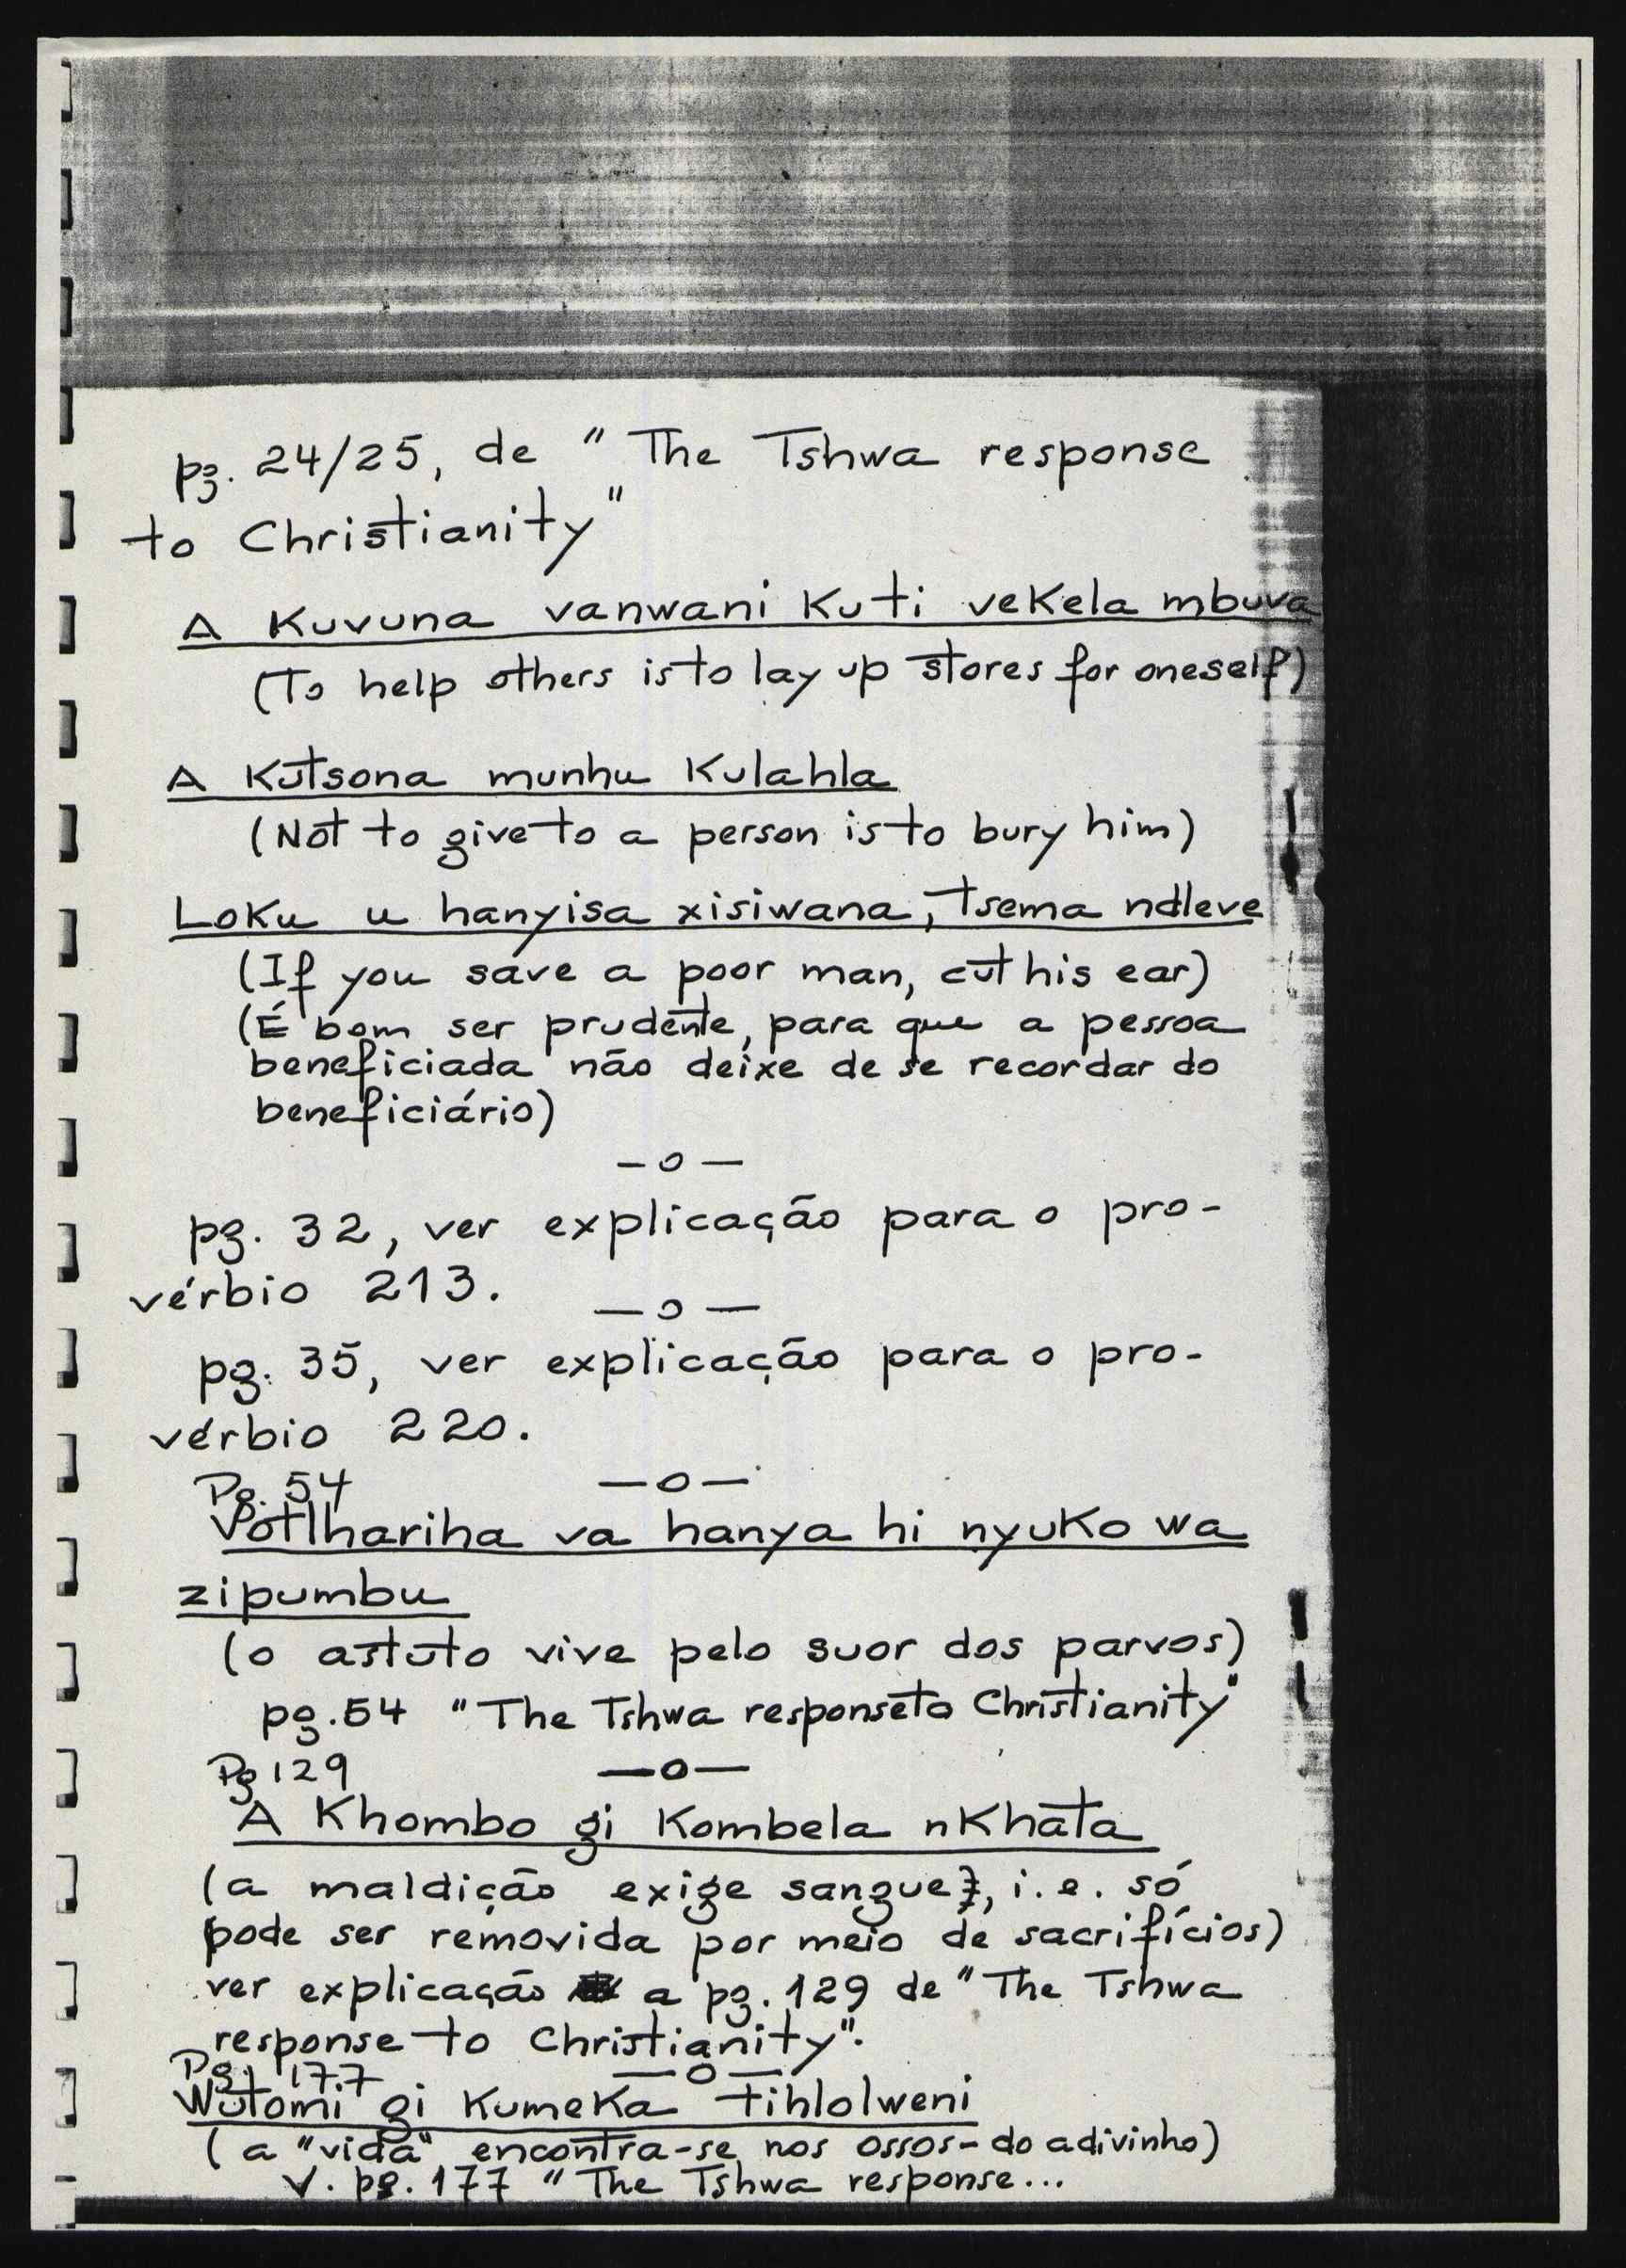 pg. 24/25, de "The Tshwa response
to Christianity"
A Kuvuna vanwani Kuti veKela mbuva
(To help others is to lay up stores for oneself)
A Kutsona munhu Kulahla
(Not to give to a person is to bury him)
Loku u hanyisa xisiwana, tsema ndleve
(If you save a poor man, cut his ear)
(É bom ser prudente, para que a pessoa
beneficiada não deixe de se recordar do
beneficiário)
—o—
pg. 32, ver explicação para o pro-
vérbio 213.
—o—
pg. 35, ver explicação para o pro-
vérbio 220.
Pg. 54 —o—
Votlhariha va hanya hi nyuKo wa
zipumbu
(o astuto vive pelo suor dos parvos)
pg. 54 "The Tshwa response to Christianity"
Pg 129 —o—
A Khombo gi Kombela nKhata
(a maldição exige sangue, i.e. só
pode ser removida por meio de sacrifícios)
ver explicação a pg. 129 de "The Tshwa
response to Christianity".
Pg. 177 —o—
Wutomi gi KumeKa tihlolweni
(a "vida" encontra-se nos ossos-do adivinho)
V. pg. 177 "The Tshwa response...